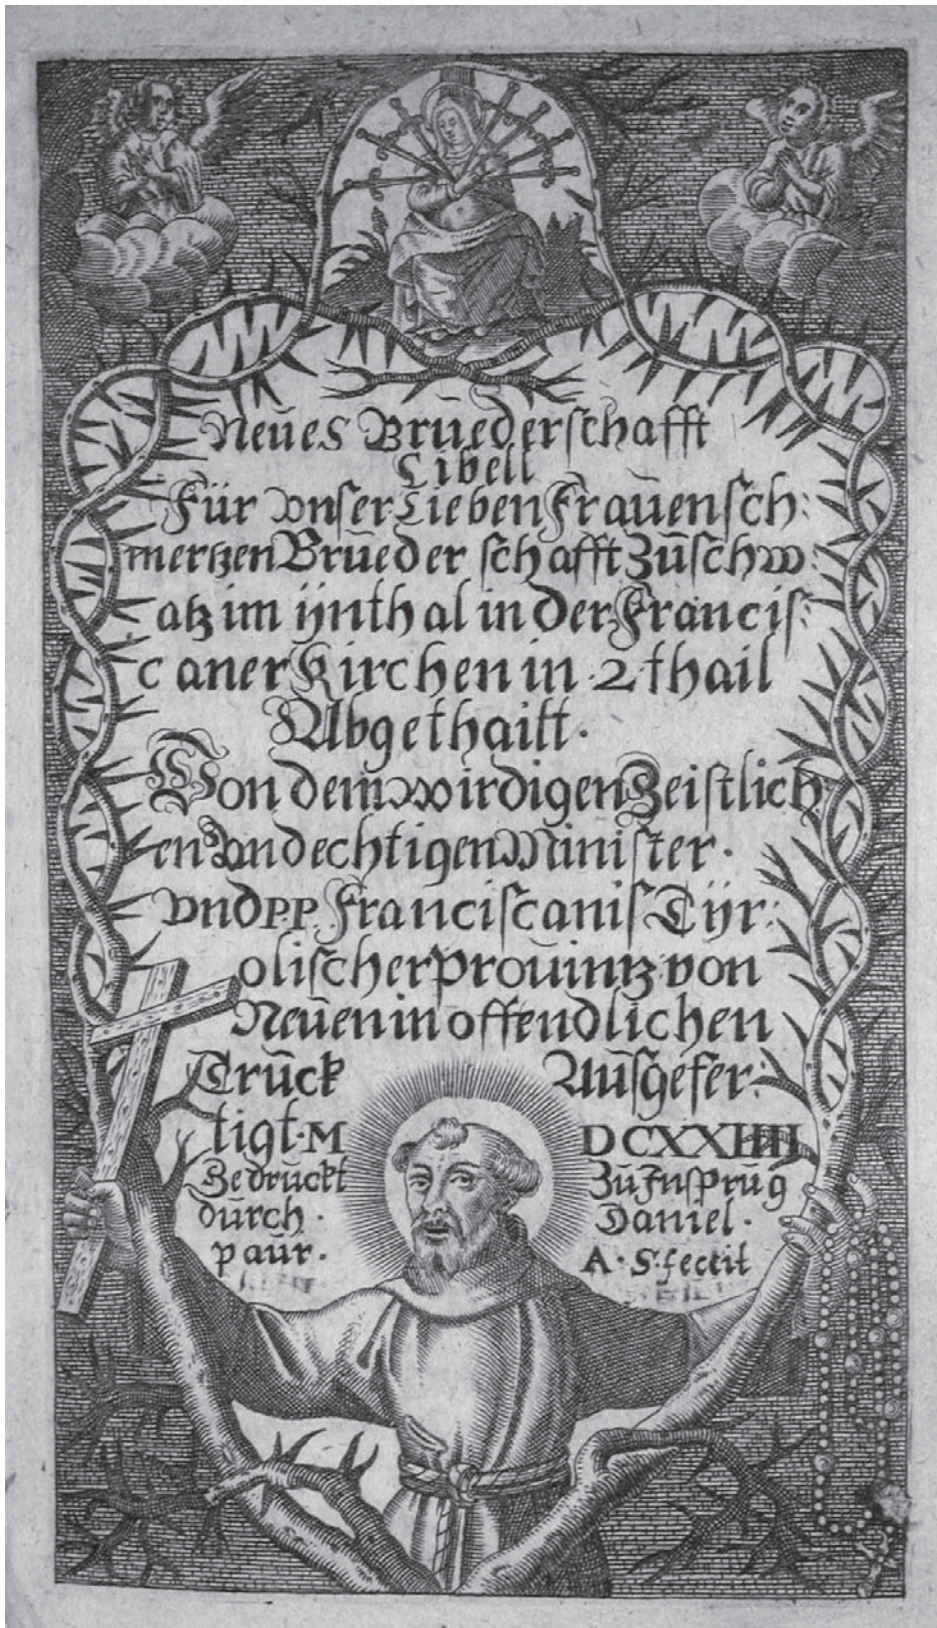 Neües Brüederschafft
Libell
Für vnser Lieben Fraüen sch:
mertzen Brüeder schafft Zü schw:
atz im ÿnthal in der Francis:
caner Kirchen in 2 thail
Abgethailt.
Von dem wirdigen Geistlich
en Andechtigen Minister.
vnd P.P. Franciscanis Tÿr:
olischer Proüintz von
Neüen in offendlichen
Trück Aüsgefer:
tigt. M DCXXIIII
Gedrückt Zü Jnsprüg
dürch. Daniel.
paür. A. S. fecit